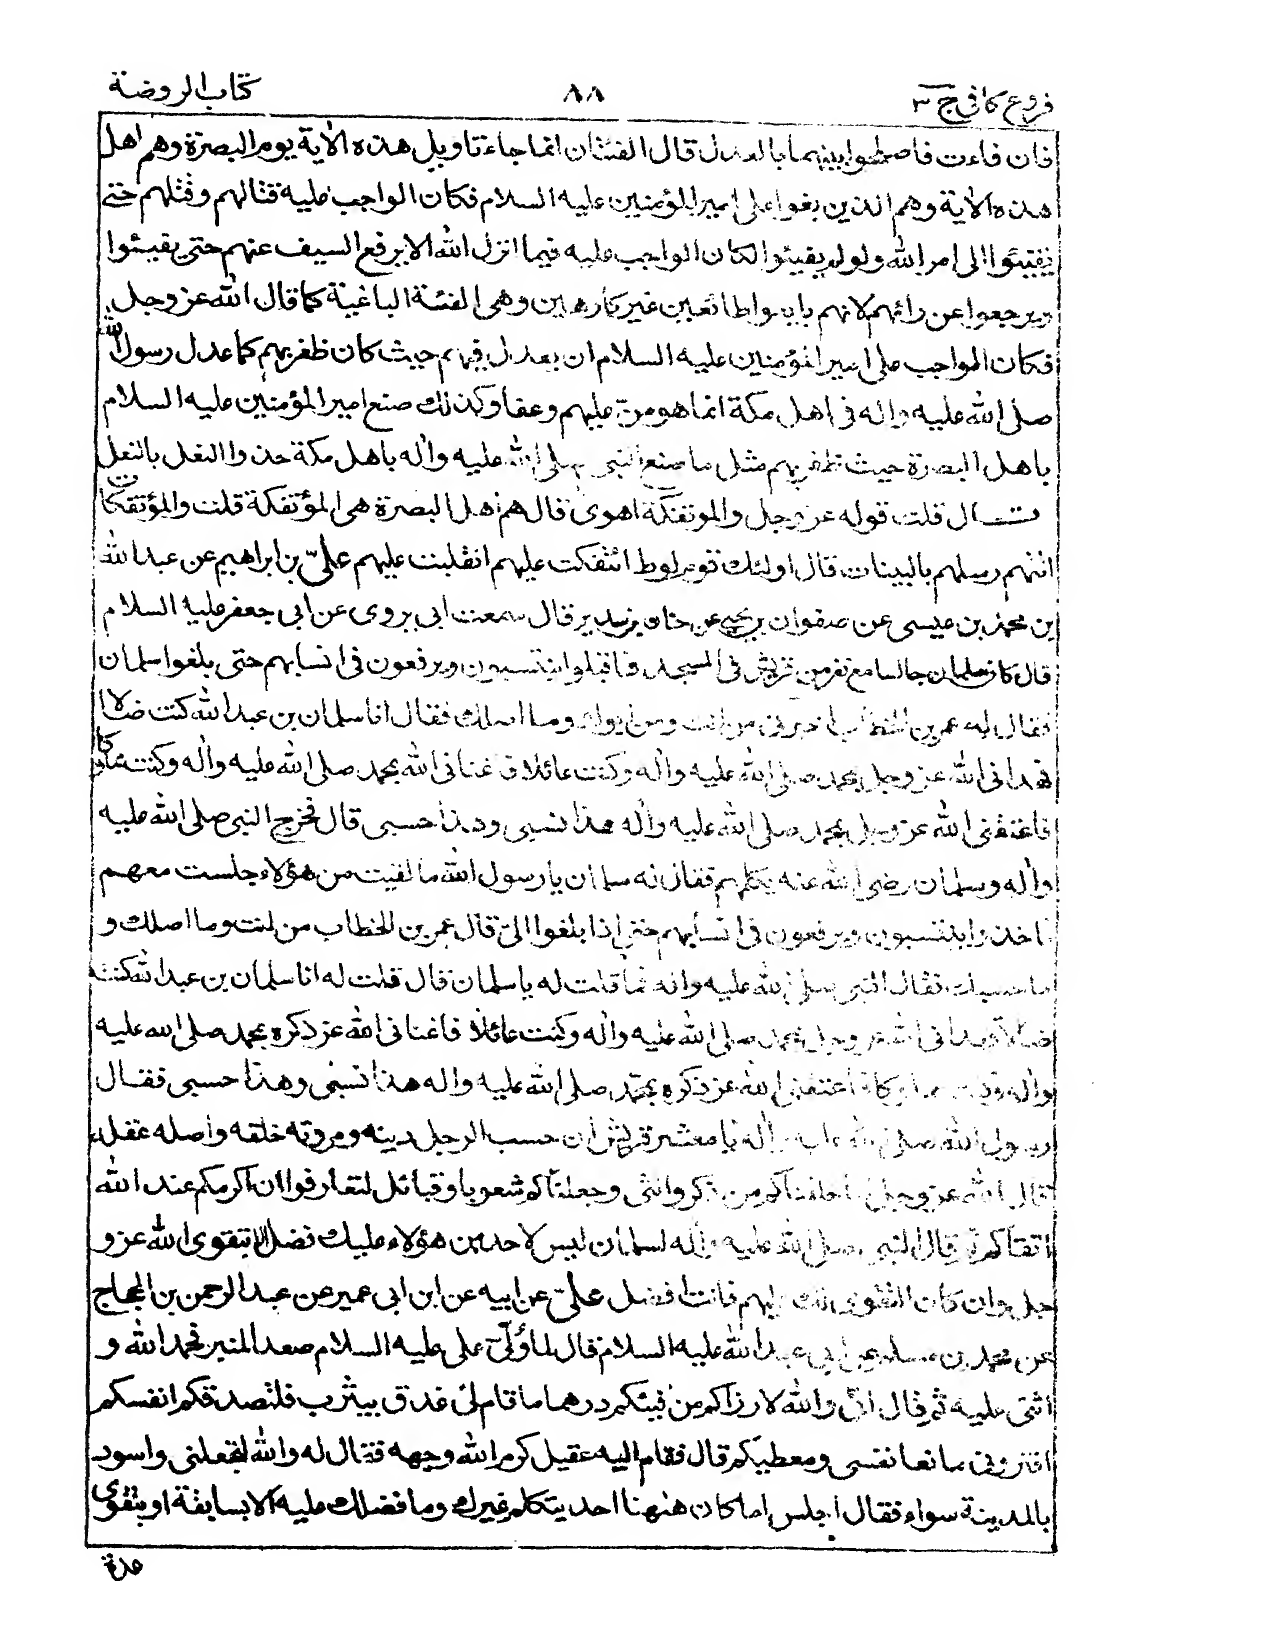 فروع کافی ج ۳
۸۸
کتاب الروضة
فان فاءت فاصلحوا بینهما بالعدل قال الفئتان انما جاء تاویل هذه الایة یوم البصرة وهم اهل
هذه الایة وهم الذین بغوا علی امیر المؤمنین علیه السلام فکان الواجب علیه قتالهم وقتلهم حتی
یفیئوا الی امر الله ولو لم یفیئوا لکان الواجب علیه فیما انزل الله الا یرفع السیف عنهم حتی یفیئوا
ویرجعوا عن رائهم لانهم بایعوا طائعین غیر کارهین وهی الفئة الباغیة کما قال الله عز وجل
فکان الواجب علی امیر المؤمنین علیه السلام ان یعدل فیهم حیث کان ظفر بهم کما عدل رسول الله
صلی الله علیه واله فی اهل مکة انما هو منّ علیهم وعفا وکذلک صنع امیر المؤمنین علیه السلام
باهل البصرة حیث ظفر بهم مثل ما صنع النبی صلی الله علیه واله باهل مکة حذو النعل بالنعل
قال قلت قوله عز وجل والموتفکة اهوی قال هم اهل البصرة هی المؤتفکة قلت والمؤتفکات
اتتهم رسلهم بالبینات قال اولئک قوم لوط ائتفکت علیهم انقلبت علیهم علیّ بن ابراهیم عن عبد الله
بن محمد بن عیسی عن صفوان بن یحیی عن حنان بن سدیر قال سمعت ابی یروی عن ابی جعفر علیه السلام
قال کان سلمان جالسا مع نفر من قریش فی المسجد فاقبلوا ینتسبون ویرفعون فی انسابهم حتی بلغوا سلمان
فقال له عمر بن الخطاب اخبرنی من انت ومن ابوک وما اصلک فقال انا سلمان بن عبد الله کنت ضالا
فهدانی الله عز وجل بمحمد صلی الله علیه واله وکنت عائلا فاغنانی الله بمحمد صلی الله علیه واله وکنت مملوکا
فاعتقنی الله عز وجل بمحمد صلی الله علیه واله هذا نسبی وهذا حسبی قال فخرج النبی صلی الله علیه
واله وسلمان رضی الله عنه یکلمهم فقال له سلمان یا رسول الله ما لقیت من هؤلاء جلست معهم
فاخذوا ینتسبون ویرفعون فی انسابهم حتی اذا بلغوا الیّ قال عمر بن الخطاب من انت وما اصلک و
ما حسبک فقال النبی صلی الله علیه واله فما قلت له یا سلمان قال قلت له انا سلمان بن عبد الله کنت
ضالا فهدانی الله عز وجل بمحمد صلی الله علیه واله وکنت عائلا فاغنانی الله عز ذکره بمحمد صلی الله علیه
واله وکنت مملوکا فاعتقنی الله عز ذکره بمحمّد صلی الله علیه واله هذا نسبی وهذا حسبی فقال
رسول الله صلی الله علیه واله یا معشر قریش ان حسب الرجل دینه ومروته خلقه واصله عقله
قال الله عز وجل انا خلقناکم من ذکر وانثی وجعلناکم شعوبا وقبائل لتعارفوا ان اکرمکم عند الله
اتقاکم ثم قال النبی صلی الله علیه واله لسلمان لیس لاحد من هؤلاء علیک فضل الا بتقوی الله عز و
جل وان کان التقوی لک علیهم فانت افضل علیّ عن ابیه عن ابن ابی عمیر عن عبد الرحمن بن الحجاج
عن محمد بن مسلم عن ابی عبد الله علیه السلام قال لما وُلّی علی علیه السلام صعد المنبر فحمد الله و
اثنی علیه ثم قال انی والله لا ارزاکم من فیئکم درهما ما قام لی عذق بیثرب فلتصدقکم انفسکم
افترونی مانعا نفسی ومعطیکم قال فقام الیه عقیل کرم الله وجهه فقال له والله لتجعلنی واسود
بالمدینة سواء فقال اجلس اما کان ههنا احد یتکلم غیرک وما فضلک علیه الا بسابقة او بتقوی